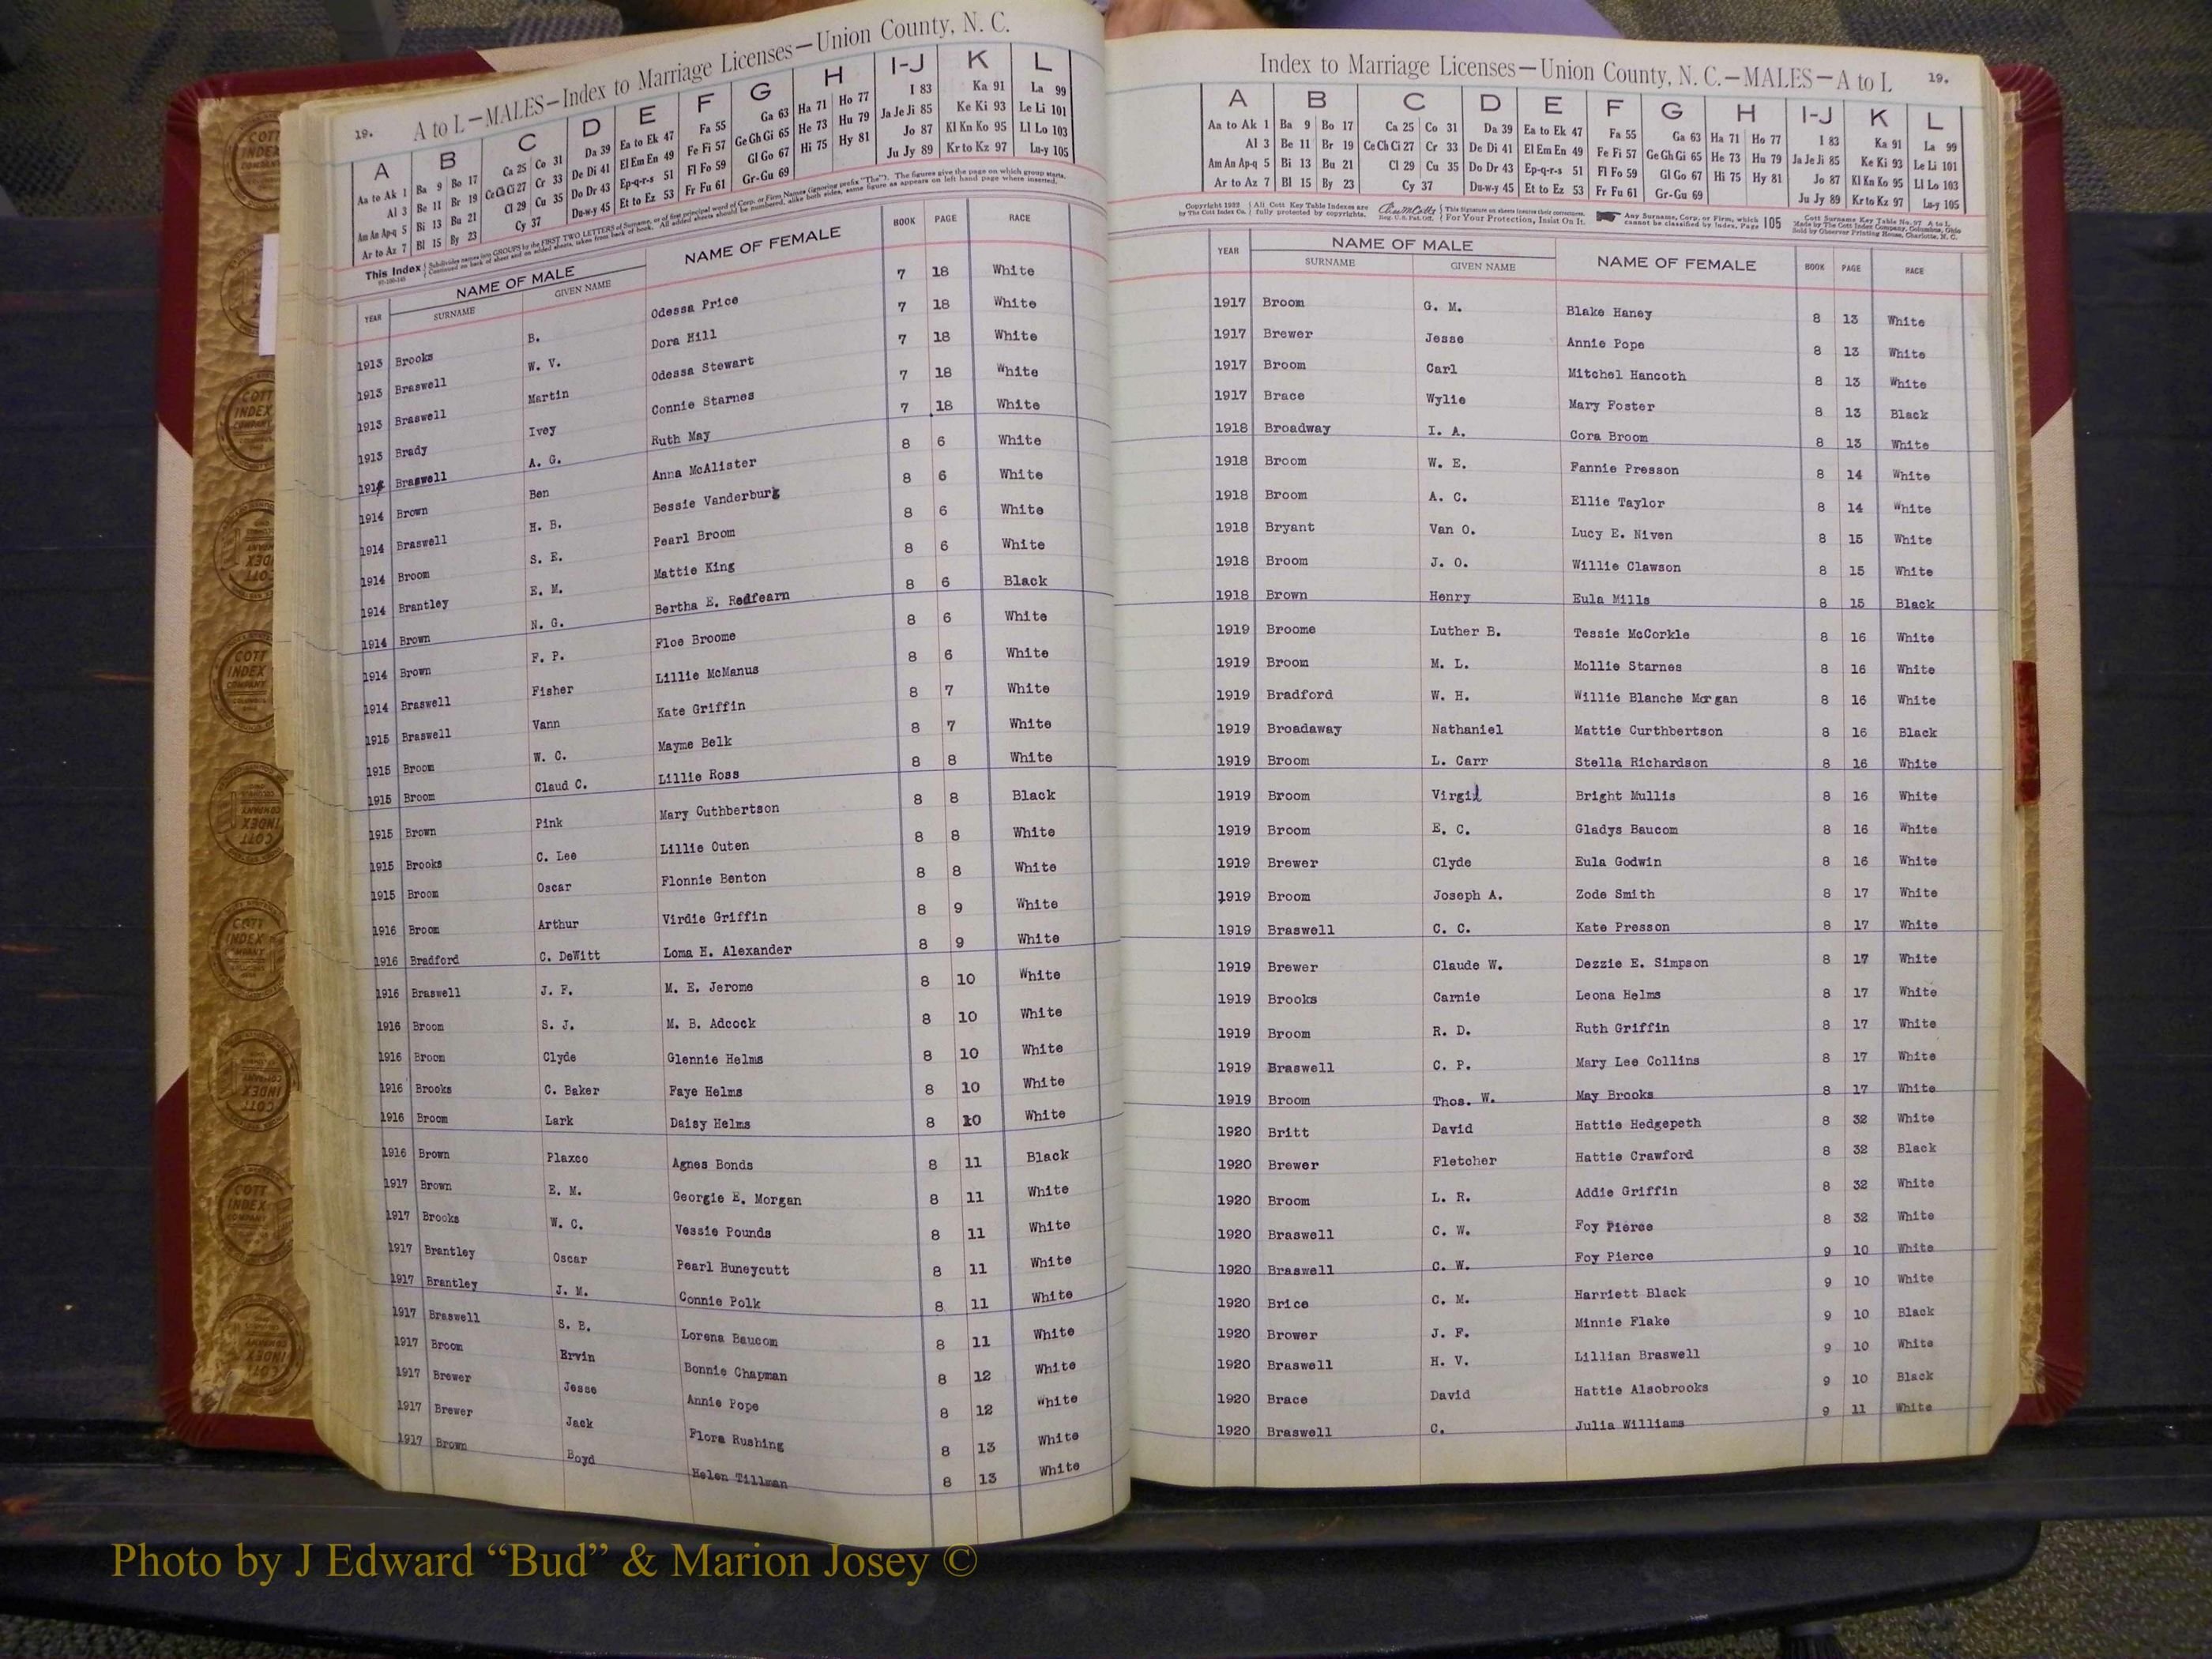 19. A to L—MALES—Index to Marriage Licenses—Union County, N. C.
A B C D E F G H I-J K L
Aa to Ak 1 Ba 9 Bo 17 Ca 25 Co 31 Da 39 Ea to Ek 47 Fa 55 Ga 63 Ha 71 Ho 77 I 83 Ka 91 La 99
Al 3 Be 11 Br 19 Ce Ch Ci 27 Cr 33 De Di 41 El Em En 49 Fe Fi 57 Ge Gh Gi 65 He 73 Hu 79 Ja Je Ji 85 Ke Ki 93 Le Li 101
Am An Ap-q 5 Bi 13 Bu 21 Cl 29 Cu 35 Do Dr 43 Ep-q-r-s 51 Fl Fo 59 Gl Go 67 Hi 75 Hy 81 Jo 87 Kl Kn Ko 95 Ll Lo 103
Ar to Az 7 Bl 15 By 23 Cy 37 Du-w-y 45 Et to Ez 53 Fr Fu 61 Gr-Gu 69 Ju Jy 89 Kr to Kz 97 Lu-y 105
This Index Subdivides names into GROUPS by the FIRST TWO LETTERS of Surname, or of first principal word of Corp. or Firm Names (ignoring prefix "The"). The figures give the page on which group starts.
Continued on back of sheet and on added sheets, taken from back of book. All added sheets should be numbered, alike both sides, same figure as appears on left hand page where inserted.
YEAR NAME OF MALE NAME OF FEMALE BOOK PAGE RACE
SURNAME GIVEN NAME
1913 Brooks B. Odessa Price 7 18 White
1913 Braswell W. V. Dora Hill 7 18 White
1913 Braswell Martin Odessa Stewart 7 18 White
1913 Brady Ivey Connie Starnes 7 18 White
Braswell A. G. Ruth May 7 18 White
1914 Brown Ben Anna McAlister 8 6 White
1914 Braswell H. B. Bessie Vanderburg 8 6 White
1914 Broom S. E. Pearl Broom 8 6 White
1914 Brantley E. M. Mattie King 8 6 White
1914 Brown N. G. Bertha E. Redfearn 8 6 Black
1914 Brown F. P. Floe Broome 8 6 White
1914 Braswell Fisher Lillie McManus 8 6 White
1915 Braswell Vann Kate Griffin 8 7 White
1915 Broom W. C. Mayme Belk 8 7 White
1915 Broom Claud C. Lillie Ross 8 8 White
1915 Brown Pink Mary Cuthbertson 8 8 Black
1915 Brooks C. Lee Lillie Outen 8 8 White
1915 Broom Oscar Flonnie Benton 8 8 White
1916 Broom Arthur Virdie Griffin 8 9 White
1916 Bradford C. DeWitt Loma H. Alexander 8 9 White
1916 Braswell J. F. M. E. Jerome 8 10 White
1916 Broom S. J. M. B. Adcock 8 10 White
1916 Broom Clyde Glennie Helms 8 10 White
1916 Brooks C. Baker Faye Helms 8 10 White
1916 Broom Lark Daisy Helms 8 10 White
1916 Brown Plaxco Agnes Bonds 8 11 Black
1917 Brown E. M. Georgie E. Morgan 8 11 White
1917 Brooks W. C. Vessie Pounds 8 11 White
1917 Brantley Oscar Pearl Huneycutt 8 11 White
1917 Brantley J. M. Connie Polk 8 11 White
1917 Braswell S. B. Lorena Baucom 8 11 White
1917 Broom Ervin Bonnie Chapman 8 12 White
1917 Brewer Jesse Annie Pope 8 12 White
1917 Brewer Jack Flora Rushing 8 13 White
1917 Brown Boyd Helen Tillman 8 13 White
Index to Marriage Licenses—Union County, N. C.—MALES—A to L 19.
A B C D E F G H I-J K L
Aa to Ak 1 Ba 9 Bo 17 Ca 25 Co 31 Da 39 Ea to Ek 47 Fa 55 Ga 63 Ha 71 Ho 77 I 83 Ka 91 La 99
Al 3 Be 11 Br 19 Ce Ch Ci 27 Cr 33 De Di 41 El Em En 49 Fe Fi 57 Ge Gh Gi 65 He 73 Hu 79 Ja Je Ji 85 Ke Ki 93 Le Li 101
Am An Ap-q 5 Bi 13 Bu 21 Cl 29 Cu 35 Do Dr 43 Ep-q-r-s 51 Fl Fo 59 Gl Go 67 Hi 75 Hy 81 Jo 87 Kl Kn Ko 95 Ll Lo 103
Ar to Az 7 Bl 15 By 23 Cy 37 Du-w-y 45 Et to Ez 53 Fr Fu 61 Gr-Gu 69 Ju Jy 89 Kr to Kz 97 Lu-y 105
Copyright 1932 All Cott Key Table Indexes are This Signature on sheets insures their correctness. Any Surname, Corp. or Firm, which Cott Surname Key Table No. 97 A to L
by The Cott Index Co. fully protected by copyrights. Reg. U. S. Pat. Off. For Your Protection, Insist On It. cannot be classified by Index, Page 105 Made by The Cott Index Company, Columbus, Ohio
Sold by Observer Printing House, Charlotte, N. C.
YEAR NAME OF MALE NAME OF FEMALE BOOK PAGE RACE
SURNAME GIVEN NAME
1917 Broom G. M. Blake Haney 8 13 White
1917 Brewer Jesse Annie Pope 8 13 White
1917 Broom Carl Mitchel Hancoth 8 13 White
1917 Brace Wylie Mary Foster 8 13 Black
1918 Broadway I. A. Cora Broom 8 13 White
1918 Broom W. E. Fannie Presson 8 14 White
1918 Broom A. C. Ellie Taylor 8 14 White
1918 Bryant Van O. Lucy E. Niven 8 15 White
1918 Broom J. O. Willie Clawson 8 15 White
1918 Brown Henry Eula Mills 8 15 Black
1919 Broome Luther B. Tessie McCorkle 8 16 White
1919 Broom M. L. Mollie Starnes 8 16 White
1919 Bradford W. H. Willie Blanche Morgan 8 16 White
1919 Broadaway Nathaniel Mattie Curthbertson 8 16 Black
1919 Broom L. Carr Stella Richardson 8 16 White
1919 Broom Virgil Bright Mullis 8 16 White
1919 Broom E. C. Gladys Baucom 8 16 White
1919 Brewer Clyde Eula Godwin 8 16 White
1919 Broom Joseph A. Zode Smith 8 17 White
1919 Braswell C. C. Kate Presson 8 17 White
1919 Brewer Claude W. Dezzie E. Simpson 8 17 White
1919 Brooks Carnie Leona Helms 8 17 White
1919 Broom R. D. Ruth Griffin 8 17 White
1919 Braswell C. P. Mary Lee Collins 8 17 White
1919 Broom Thos. W. May Brooks 8 17 White
1920 Britt David Hattie Hedgepeth 8 32 White
1920 Brewer Fletcher Hattie Crawford 8 32 Black
1920 Broom L. R. Addie Griffin 8 32 White
1920 Braswell C. W. Foy Pierce 8 32 White
1920 Braswell C. W. Foy Pierce 9 10 White
1920 Brice C. M. Harriett Black 9 10 White
1920 Brower J. F. Minnie Flake 9 10 Black
1920 Braswell H. V. Lillian Braswell 9 10 White
1920 Brace David Hattie Alsobrooks 9 10 Black
1920 Braswell C. Julia Williams 9 11 White
Photo by J Edward “Bud” & Marion Josey ©